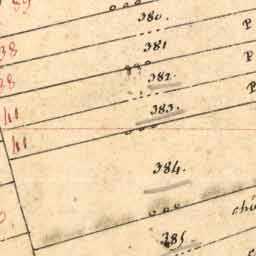 89
380.
P
38
381
P
38
382.
P
41
383.
41
384.
chú
385.